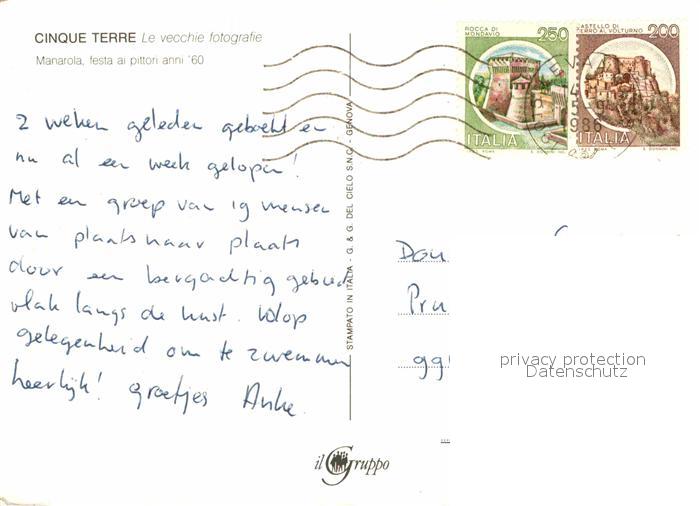 CINQUE TERRE Le vecchie fotografie
Manarola, festa ai pittori anni '60
ROCCA DI
MONDAVIO
250
ITALIA
CASTELLO DI
CERRO AL VOLTURNO
200
ITALIA
2 weken geleden geboekt en
nu al een week gelopen!
Met een groep van 19 mensen
van plaats naar plaats
door een bergachtig gebied
vlak langs de kust. Volop
gelegenheid om te zwemmen
heerlijk! groetjes Anke
STAMPATO IN ITALIA - G. & G. DEL CIELO S.N.C. - GENOVA
Dou
Pru
99
privacy protection
Datenschutz
il Gruppo